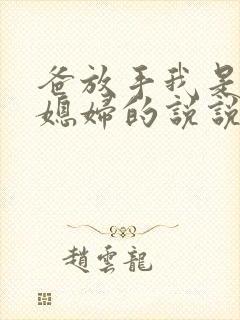 爸放手我是
媳婦的説説
趙雲龍